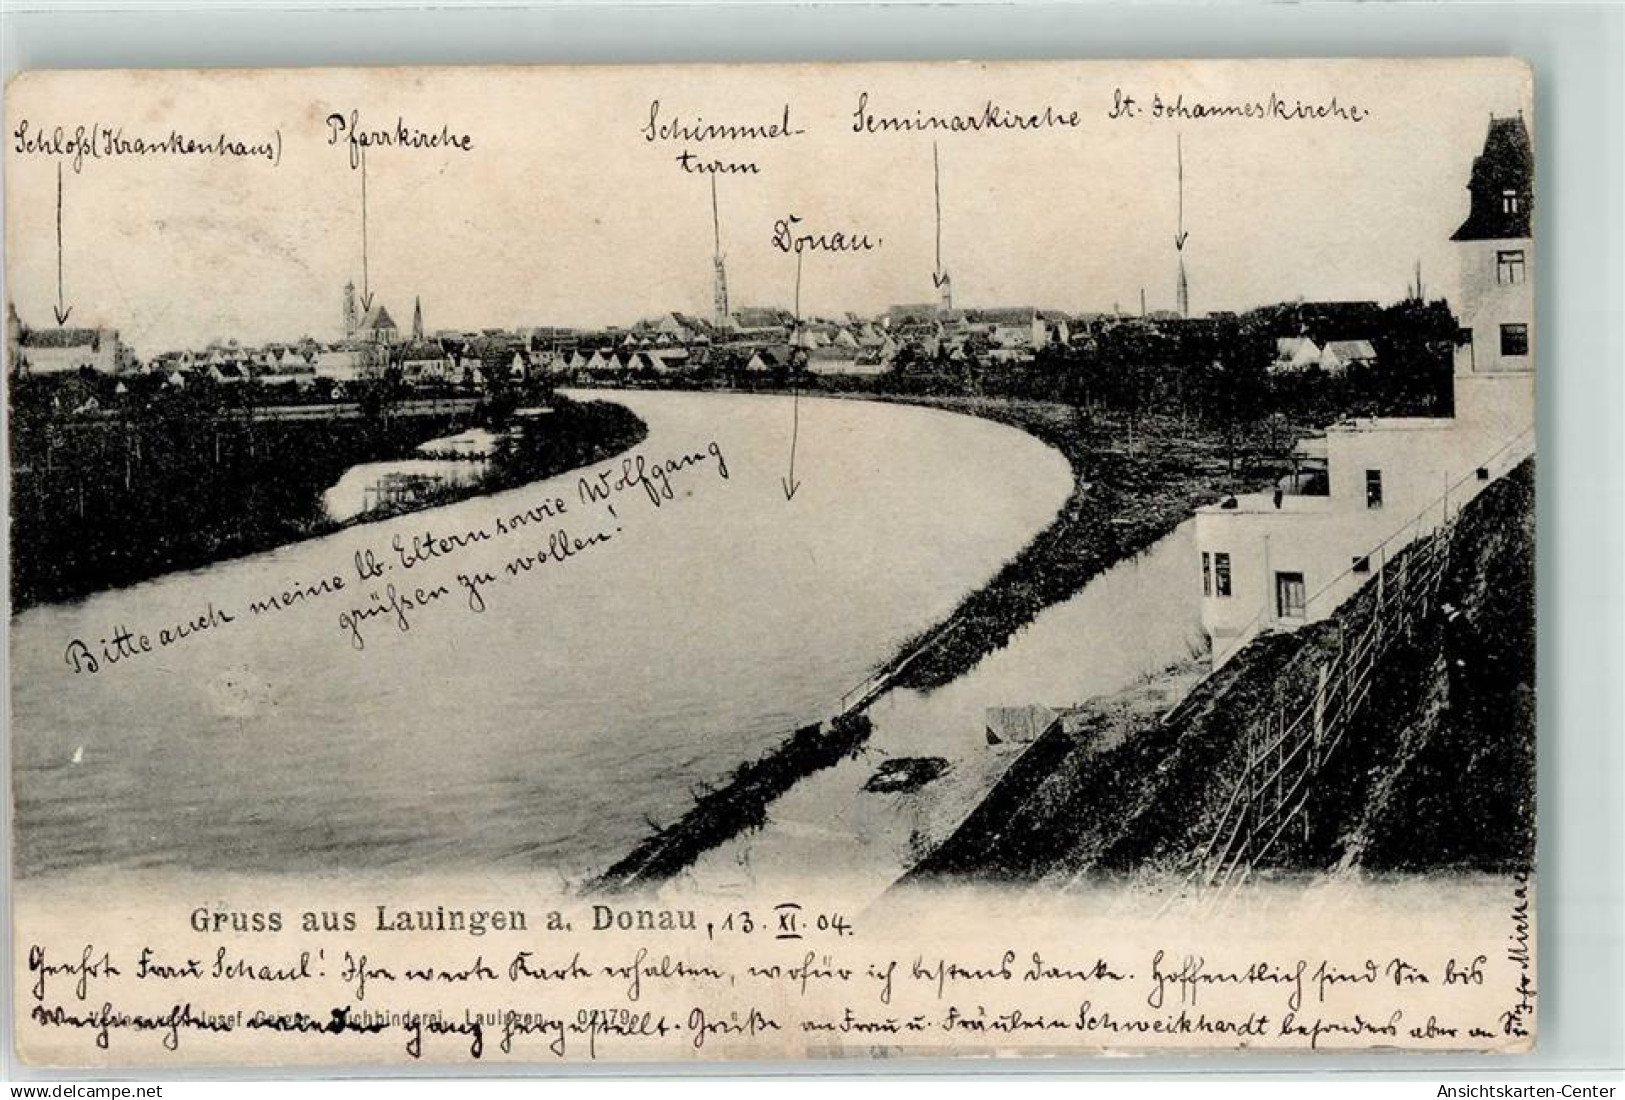 Schloß (Krankenhaus)
Pfarrkirche
Schimmel-
turm
Seminarkirche
St. Johanneskirche.
Donau.
Bitte auch meine lb. Eltern sowie Wolfgang
grüßen zu wollen!
Gruss aus Lauingen a. Donau, 13. XI. 04.
Geehrte Frau Schaul! Ihre werte Karte erhalten, wofür ich bestens danke. Hoffentlich sind Sie bis
Weihnachten wieder ganz hergestellt. Grüße an Frau u. Fräulein Schweikhardt besonders aber an Sie
Verlag von Josef Geiger, Buchbinderei, Lauingen. 02179
Ihr Michael
oldthing.de
Ansichtskarten-Center